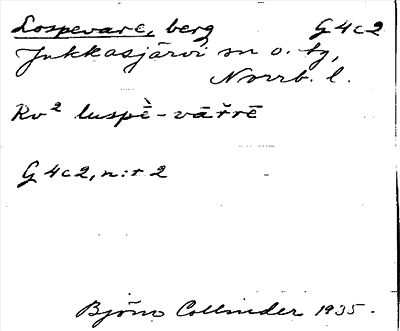 Lospevare, berg G 4 c 2
Jukkasjärvi sn o. tg,
Norrb. l.
Rv² luspḕ-vāřrē
G 4 c 2, n:r 2
Björn Collinder 1935.